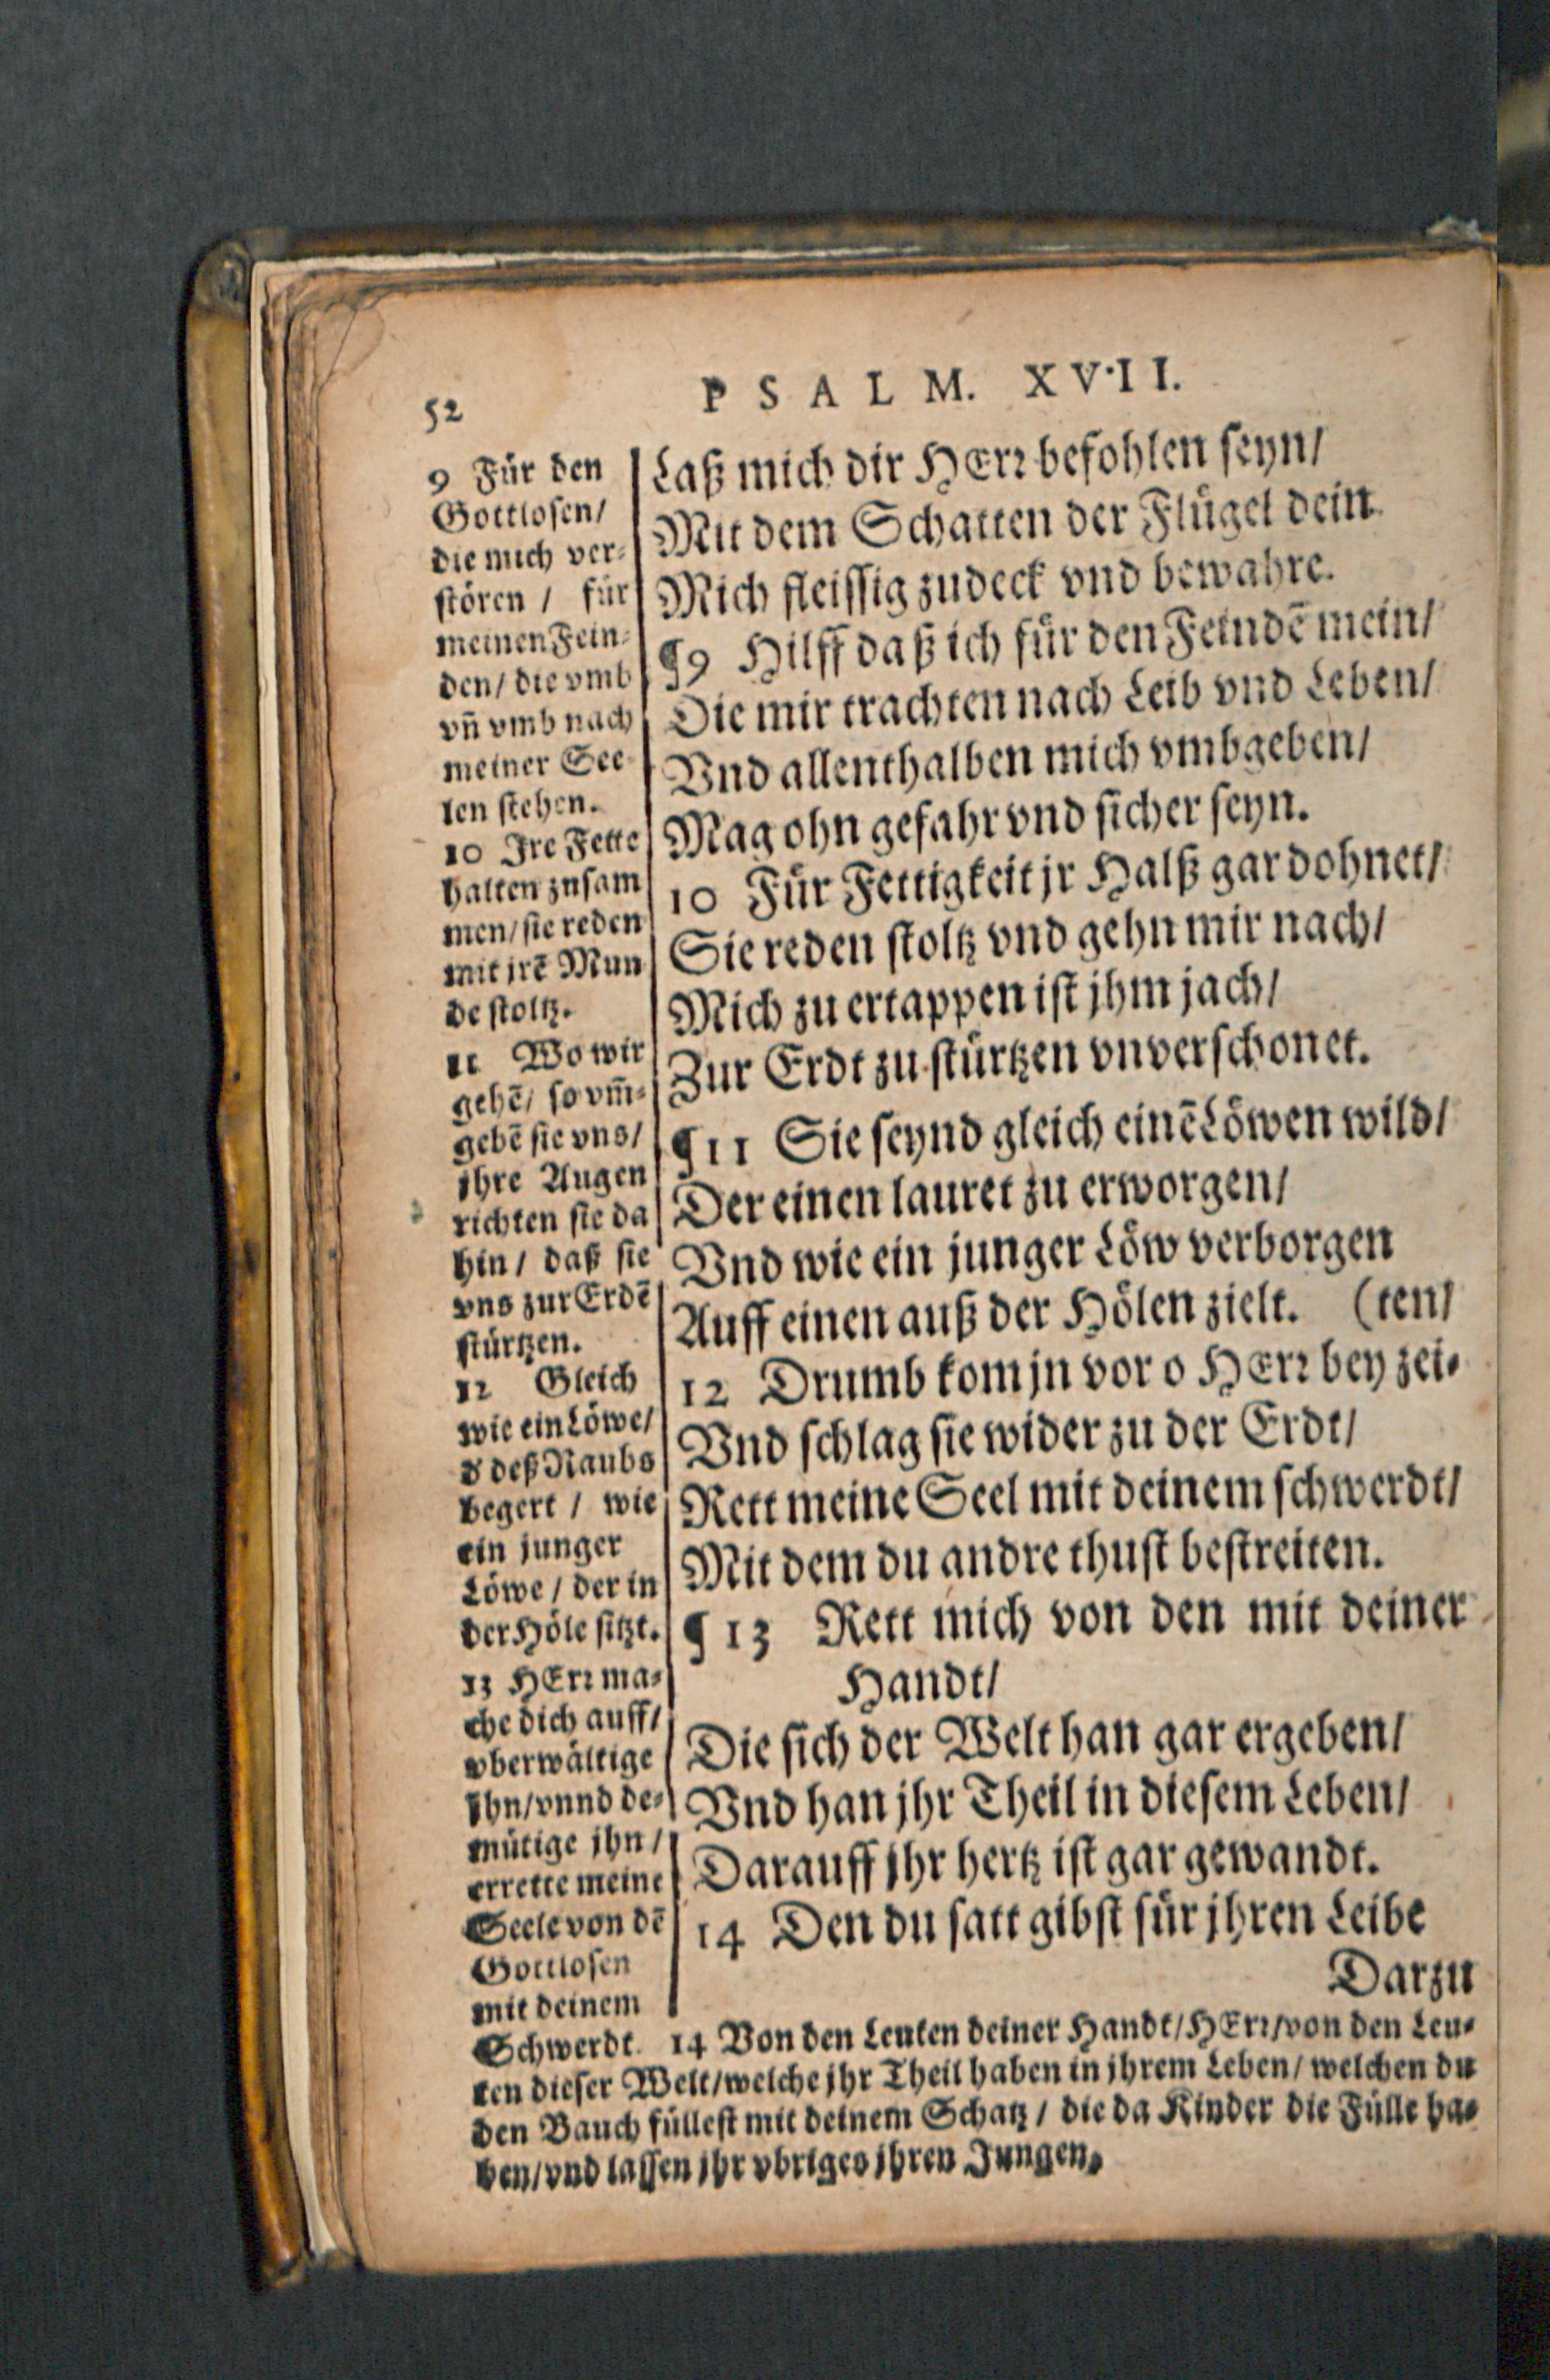 52
PSALM. XVII.
9 Für den
Gottlosen/
die mich ver-
stören / für
meinen Fein-
den/ die vmb
vñ vmb nach
meiner See
len stehen.
10 Ire Fette
halten zusam
men/ sie reden
mit jrē Mun
de stoltz.
11 Wo wir
gehē/ so vm̄-
gebē sie vns/
jhre Augen
richten sie da
hin / daß sie
vns zur Erdē
stürtzen.
12 Gleich
wie ein Löwe/
d' deß Raubs
begert / wie
ein junger
Löwe / der in
der Höle sitzt.
13 HErr ma-
che dich auff/
vberwältige
jhn/ vnnd de-
mütige jhn /
errette meine
Seele von dē
Gottlosen
mit deinem
Laß mich dir HErr befohlen seyn/
Mit dem Schatten der Flügel dein
Mich fleissig zudeck vnd bewahre.
¶9 Hilff daß ich für den Feindē mein/
Die mir trachten nach Leib vnd Leben/
Vnd allenthalben mich vmbgeben/
Mag ohn gefahr vnd sicher seyn.
10 Für Fettigkeit jr Halß gar dohnet/
Sie reden stoltz vnd gehn mir nach/
Mich zu ertappen ist jhm jach/
Zur Erdt zu stürtzen vnverschonet.
¶11 Sie seynd gleich einē Löwen wild/
Der einen lauret zu erworgen/
Vnd wie ein junger Löw verborgen
Auff einen auß der Hölen zielt. (ten/
12 Drumb kom jn vor o HErr bey zei-
Vnd schlag sie wider zu der Erdt/
Rett meine Seel mit deinem schwerdt/
Mit dem du andre thust bestreiten.
¶13 Rett mich von den mit deiner
Handt/
Die sich der Welt han gar ergeben/
Vnd han jhr Theil in diesem Leben/
Darauff jhr hertz ist gar gewandt.
14 Den du satt gibst für jhren Leibe
Darzu
Schwerdt. 14 Von den Leuten deiner Handt/ HErr/ von den Leu-
ten dieser Welt/ welche jhr Theil haben in jhrem Leben/ welchen du
den Bauch füllest mit deinem Schatz / die da Kinder die Fülle ha-
ben/ vnd lassen jhr vbriges jhren Jungen.